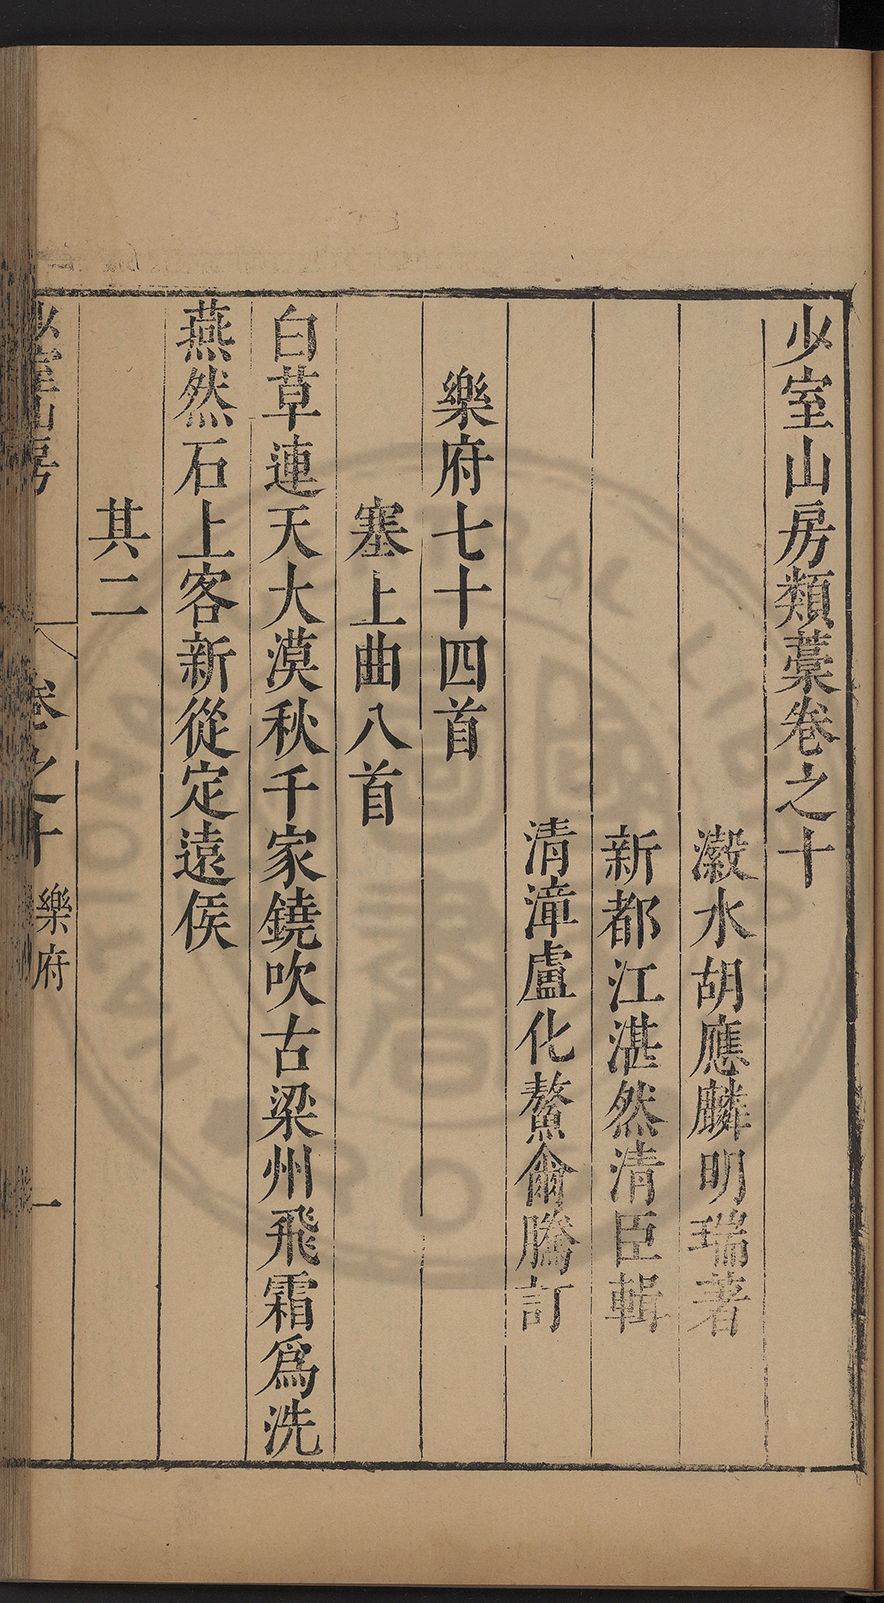 少室山房類藁卷之十
瀫水胡應麟明瑞著
新都江湛然清臣輯
清漳盧化鰲爾騰訂
樂府七十四首
塞上曲八首
白草連天大漠秋千家鐃吹古梁州飛霜爲洗
燕然石上客新從定遠侯
其二
少室山房 卷之十 樂府 一